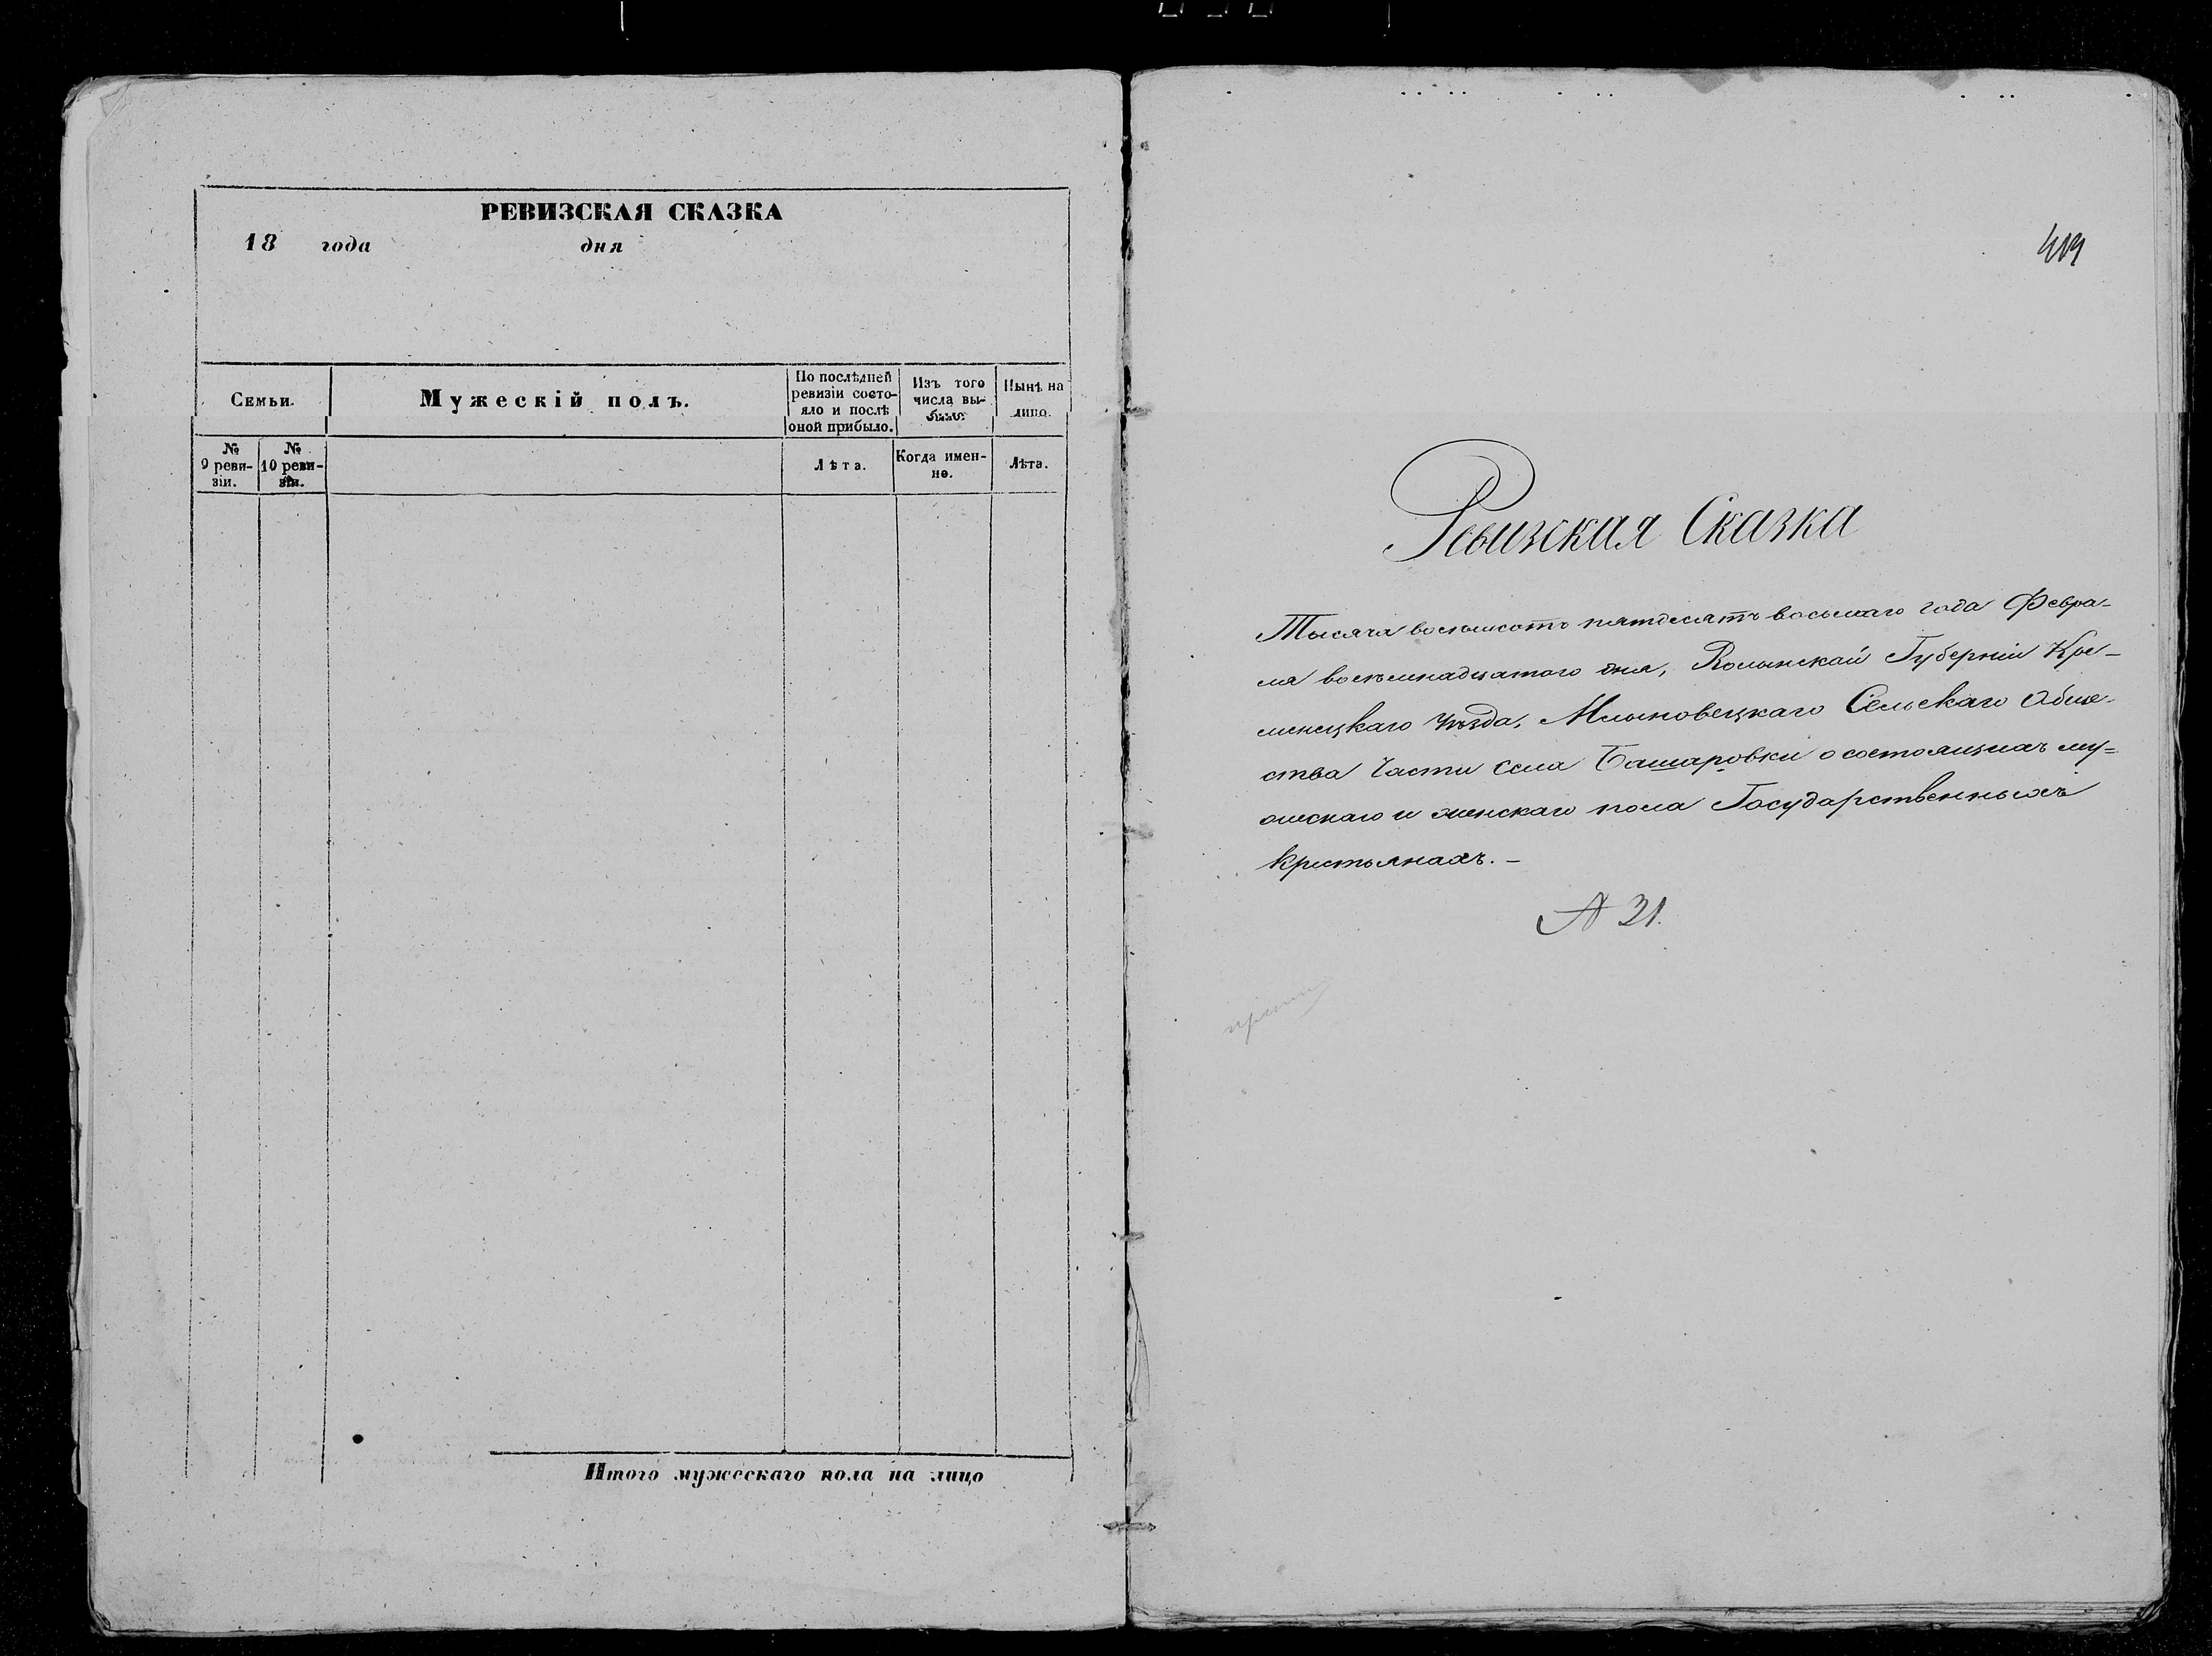 РЕВИЗСКАЯ СКАЗКА
18 года дня
Семьи.
Мужескій полъ.
По послѣдней
ревизіи состо-
яло и послѣ
оной прибыло.
Изъ того
числа вы-
было.
Нынѣ на
лицо.
№
9 реви-
зіи.
№
10 реви-
зіи.
Лѣта.
Когда имен-
но.
Лѣта.
Итого мужескаго пола на лицо
Ревизская Сказка
Тысяча восемсотъ пятдесятъ восьмаго года Февра-
ля восемнадцатого дня, Волынской Губерніи Кре-
менецкаго Уѣзда, Млыновецкаго Сельскаго Обще-
ства Части села Башаровки о состоящихъ му=
жескаго и женскаго пола Государственныхъ
крестьянахъ. –
№ 21.